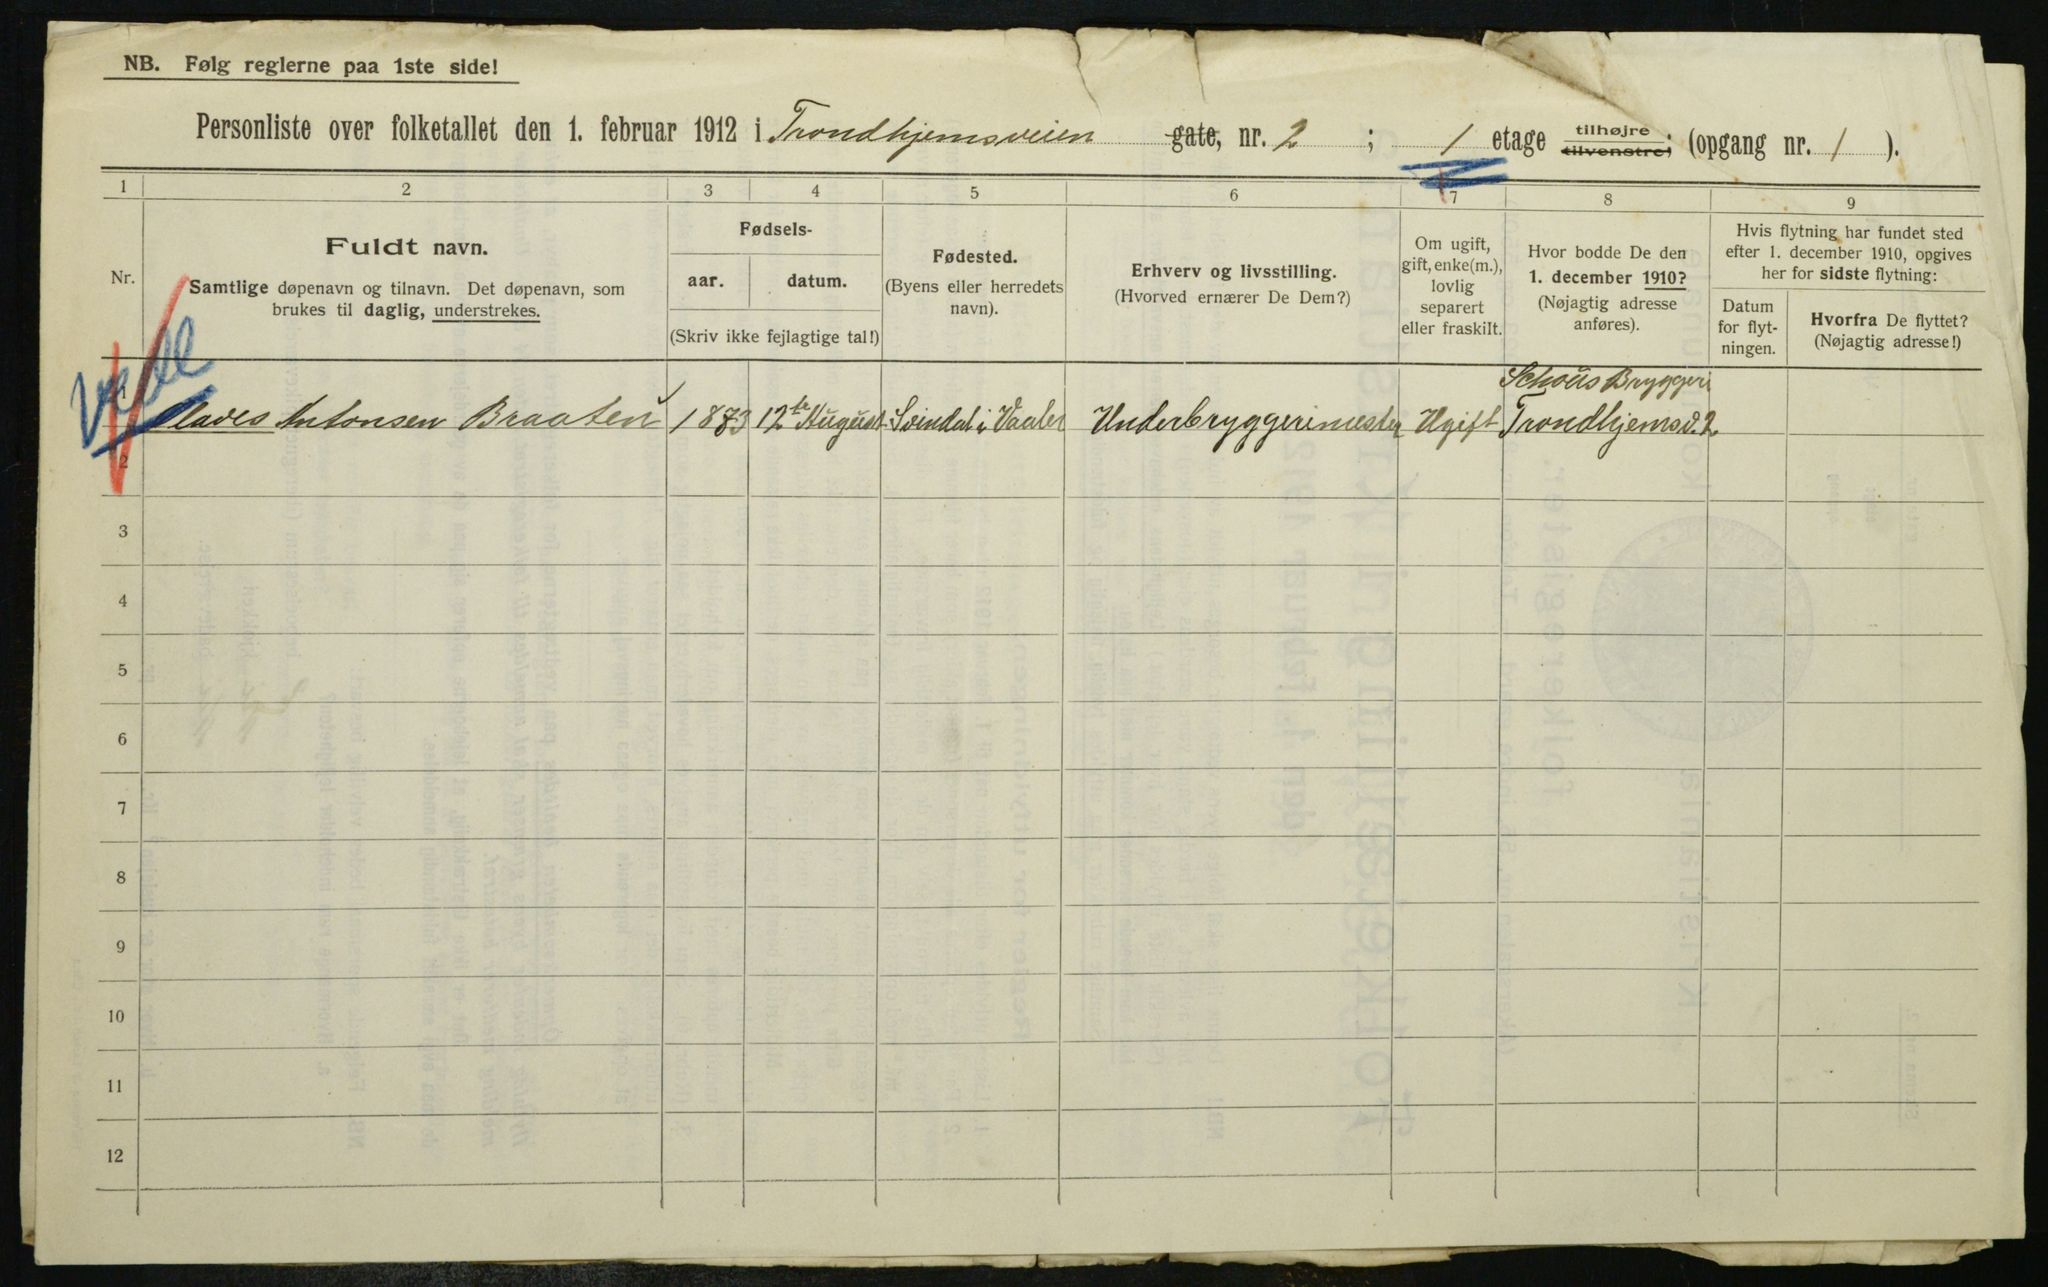 NB. Følg reglerne paa 1ste side!
Personliste over folketallet den 1. februar 1912 i Trondhjemsveien gate, nr. 2 ; 1 etage tilhøjre tilvenstre; (opgang nr. 1 ).
1 2 3 4 5 6 7 8 9
Nr.
Fuldt navn.
Samtlige døpenavn og tilnavn. Det døpenavn, som
brukes til daglig, understrekes.
Fødsels-
aar. datum.
(Skriv ikke fejlagtige tal!)
Fødested.
(Byens eller herredets
navn).
Erhverv og livsstilling.
(Hvorved ernærer De Dem?)
Om ugift,
gift, enke(m.),
lovlig
separert
eller fraskilt.
Hvor bodde De den
1. december 1910?
(Nøjagtig adresse
anføres).
Hvis flytning har fundet sted
efter 1. december 1910, opgives
her for sidste flytning:
Datum
for flyt-
ningen.
Hvorfra De flyttet?
(Nøjagtig adresse!)
Schous Bryggeri
1 Antonsen Braaten 1883 12te August Svindal i Vaaler Underbryggerimester Ugift Trondhjemsv. 2
2
3
4
5
6
7
8
9
10
11
12